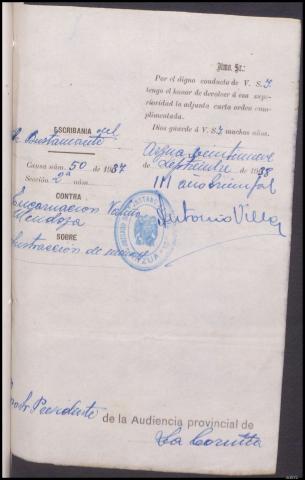 Ilmo. Sr.:
Por el digno conducto de V. S. I
tengo el honor de devolver á esa supe-
rioridad la adjunta carta orden cum-
plimentada.
Dios guarde á V. S. I muchos años.
Arzua veintinueve
de Septiembre de 1938
III año triunfal
Antonio Villar
ESCRIBANIA del
Sr. Bustamante
Causa núm. 50 de 1937
Sección 2ª núm.
CONTRA
Encarnacion
Mendoza
SOBRE
Sustraccion de menor
ARZUA
Presidente
de la Audiencia provincial de
La Coruña